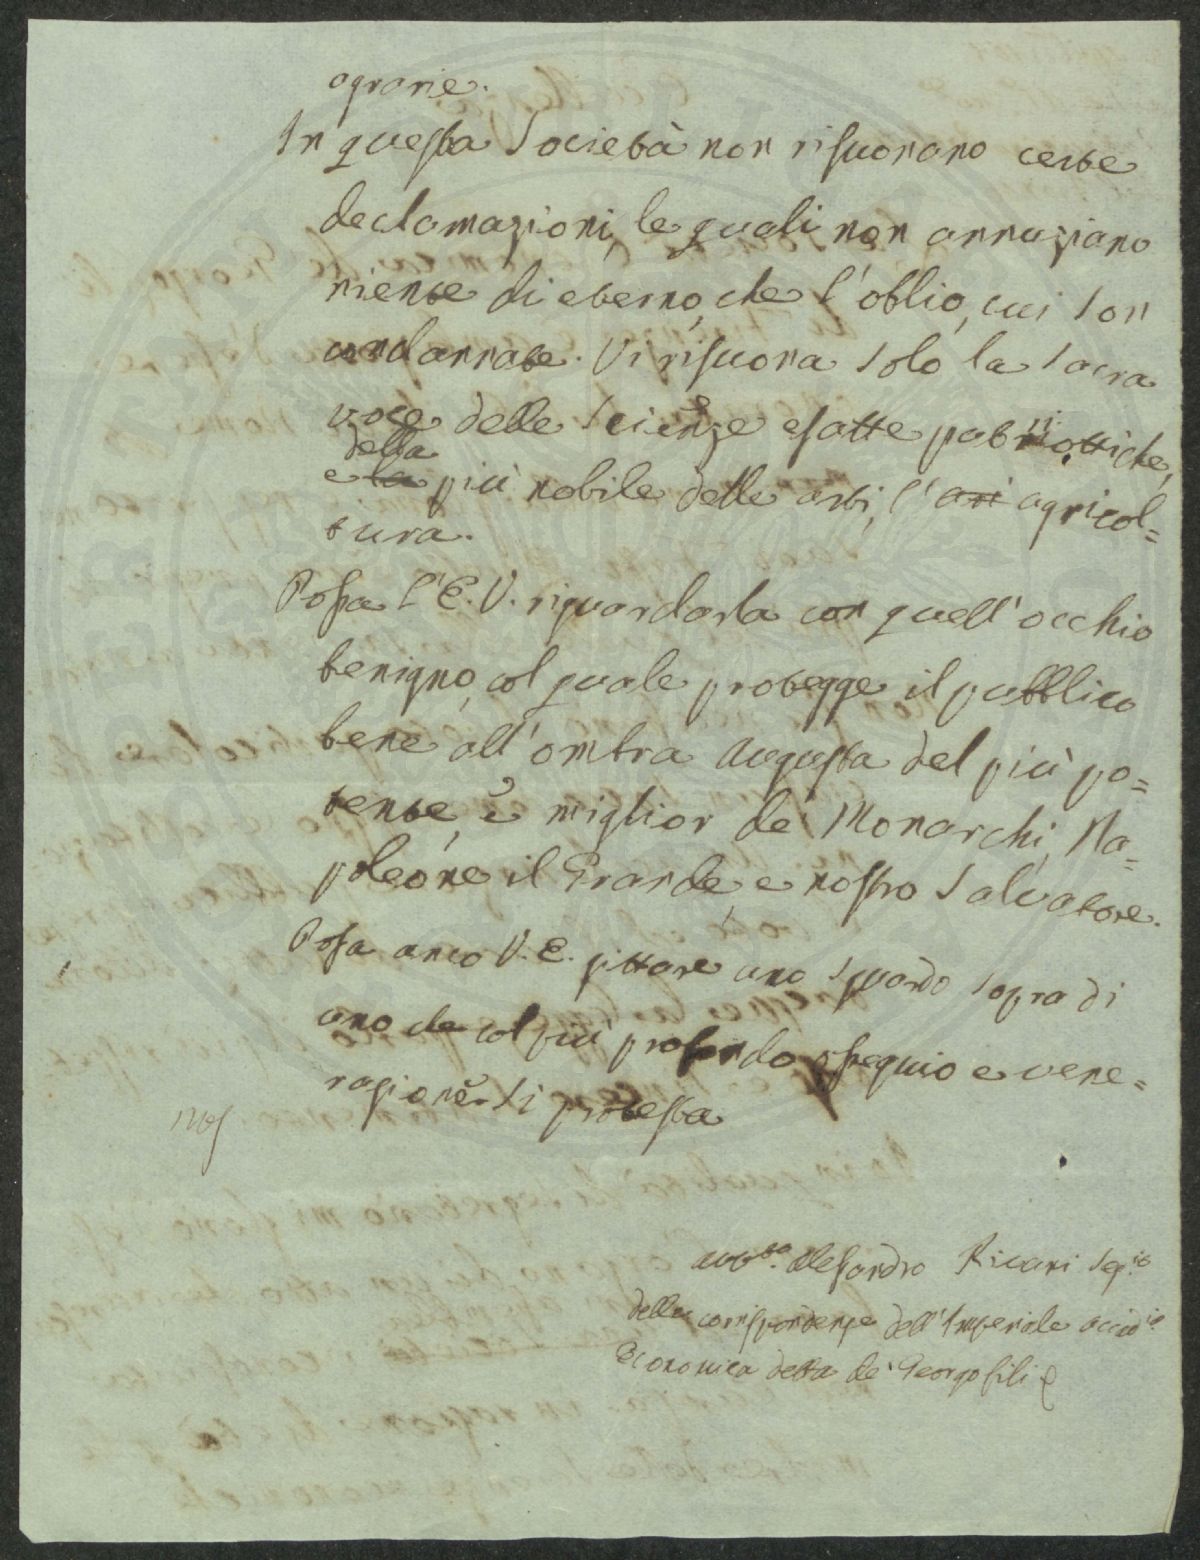 agrarie.
In questa Società non risuonano certe
declamazioni, le quali non annuziano
niente di eterno, che l'oblio, cui son
condannate. Vi risuona solo la sacra
voce delle Scienze esatte patriottiche,
della
e la più nobile delle arti, l'ari agricol=
tura.
Possa l'E. V. riguardarla con quell'occhio
benigno, col quale protegge il pubblico
bene all'ombra augusta del più po=
tente, e miglior de' Monarchi, Na=
poleone il Grande, e nostro Salvatore.
Possa anco V. E. gittare uno sguardo sopra di
uno che col più profondo ossequio e vene=
razione si protesta
Alessandro Rivani Seg.io
della corrispondenza dell'Imperiale Accad.ia
Economica detta de' Georgofili